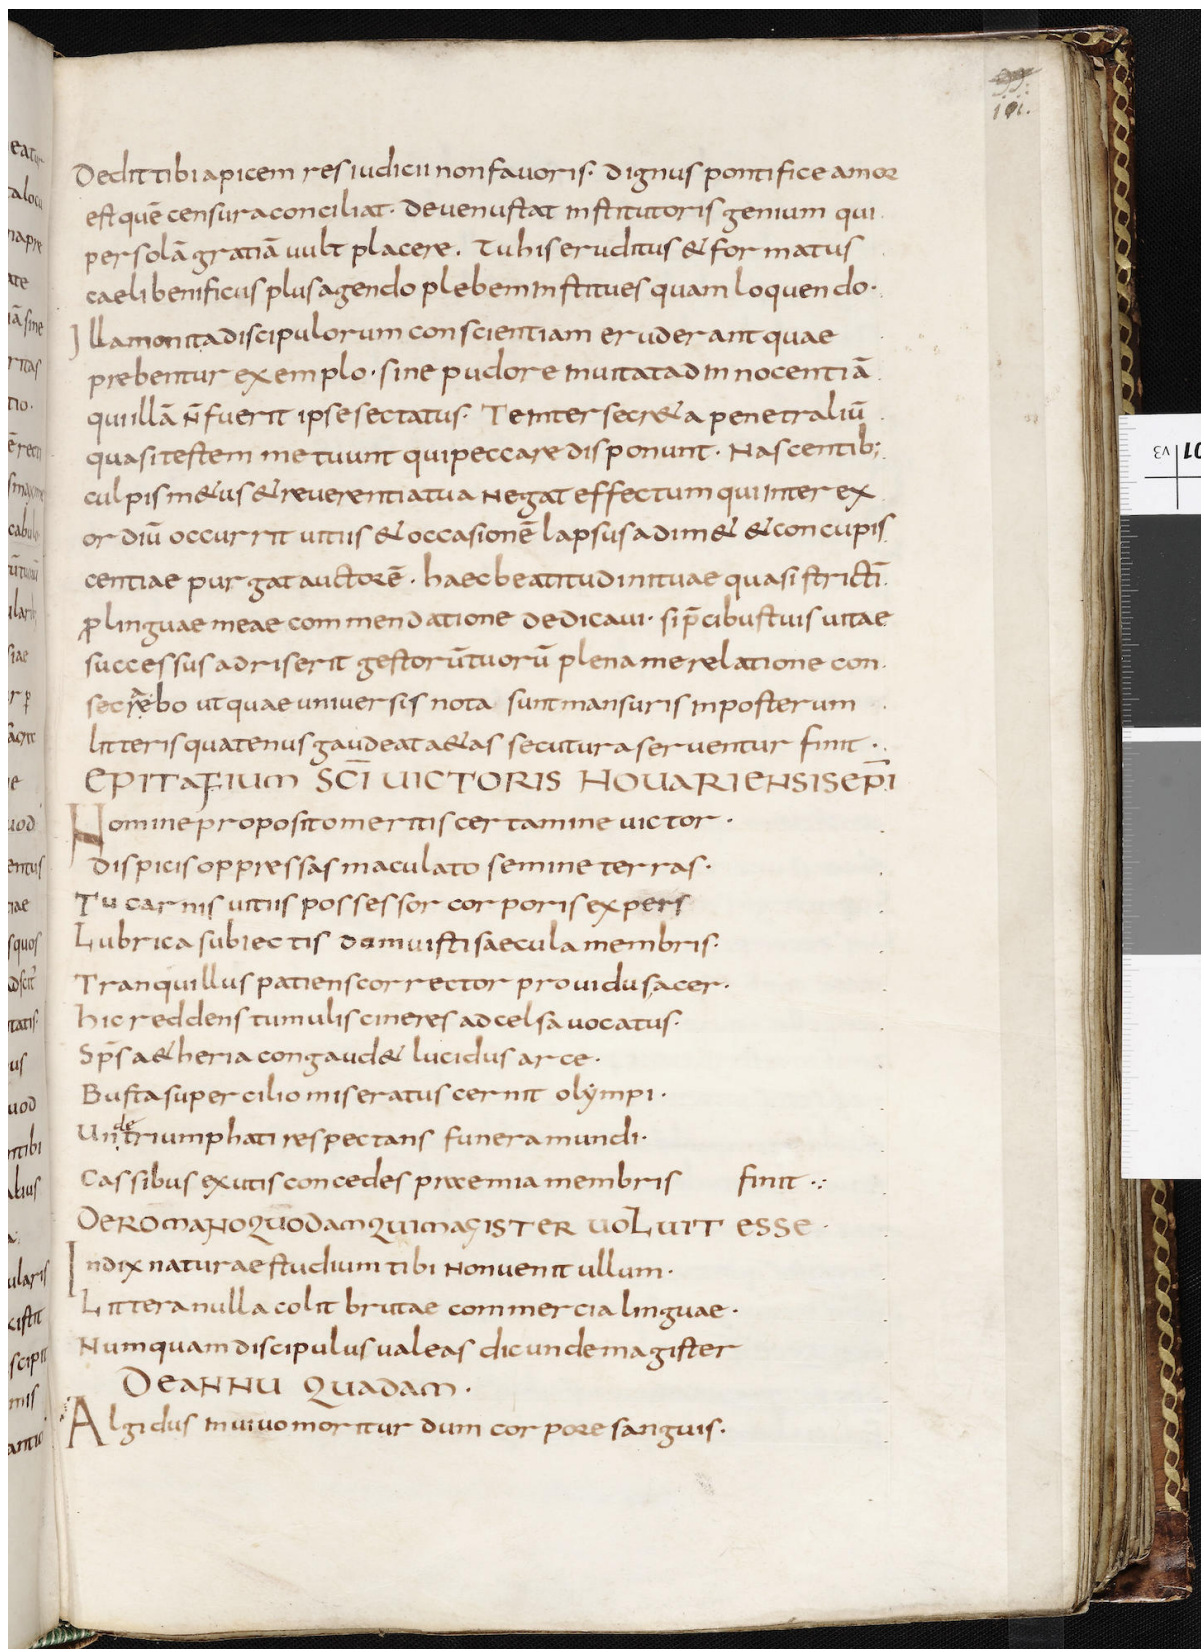 101.
Dedit tibi apicem res iudicii non fauoris. Dignus pontifice amor
est quē censura conciliat. deuenustat institutoris genium qui
per solā gratiā uult placere. Tu his eruditus & formatus
caeli benificus plus agendo plebem instituis quam loquendo.
Illa monita discipulorum conscientiam eruderant quae
prebentur exemplo. sine pudore inuitat ad innocentiā
qui illā n̄ fuerit ipse sectatus. Te inter secr&a penetraliū
quasi testem metuunt qui peccare disponunt. Nascentib;
culpis m&us & reuerentia tua negat effectum qui inter ex
ordiū occurrit uitiis & occasionē lapsus adim& & concupis
centiae purgat auctorē. haec beatitudini tuae quasi strictī
ꝓ linguae meae commendatione dedicaui. si p̄cibus tuis uitae
successus adriserit gestorū tuorū plena me relatione con
secrabo ut quae uniuersis nota sunt mansuris in posterum
litteris quatenus gaudeat a&as secutura seruentur finit.
EPITAFIUM SC̄I UICTORIS NOUARIENSIS EP̄I
Nomine proposito meritis certamine uictor.
dispicis oppressas maculato semine terras.
Tu carnis uitiis possessor corporis expers
Lubrica subiectis domuisti saecula membris.
Tranquillus patiens corrector prouidus acer.
hic reddens tumulis cineres ad celsa uocatus.
Sp̄s a&heria congaud& lucidus arce.
Busta supercilio miseratus cernit olympi.
Unde triumphati respectans funera mundi.
Cassibus exutis concedes praemia membris finit.:
DE ROMANO QUODAM QUI MAGISTER UOLUIT ESSE.
Indix naturae studium tibi non uenit ullum.
Littera nulla colit brutae commercia linguae.
Numquam discipulus ualeas dic unde magister
DE ANNU QUADAM.
Algidus in uiuo moritur dum corpore sanguis.